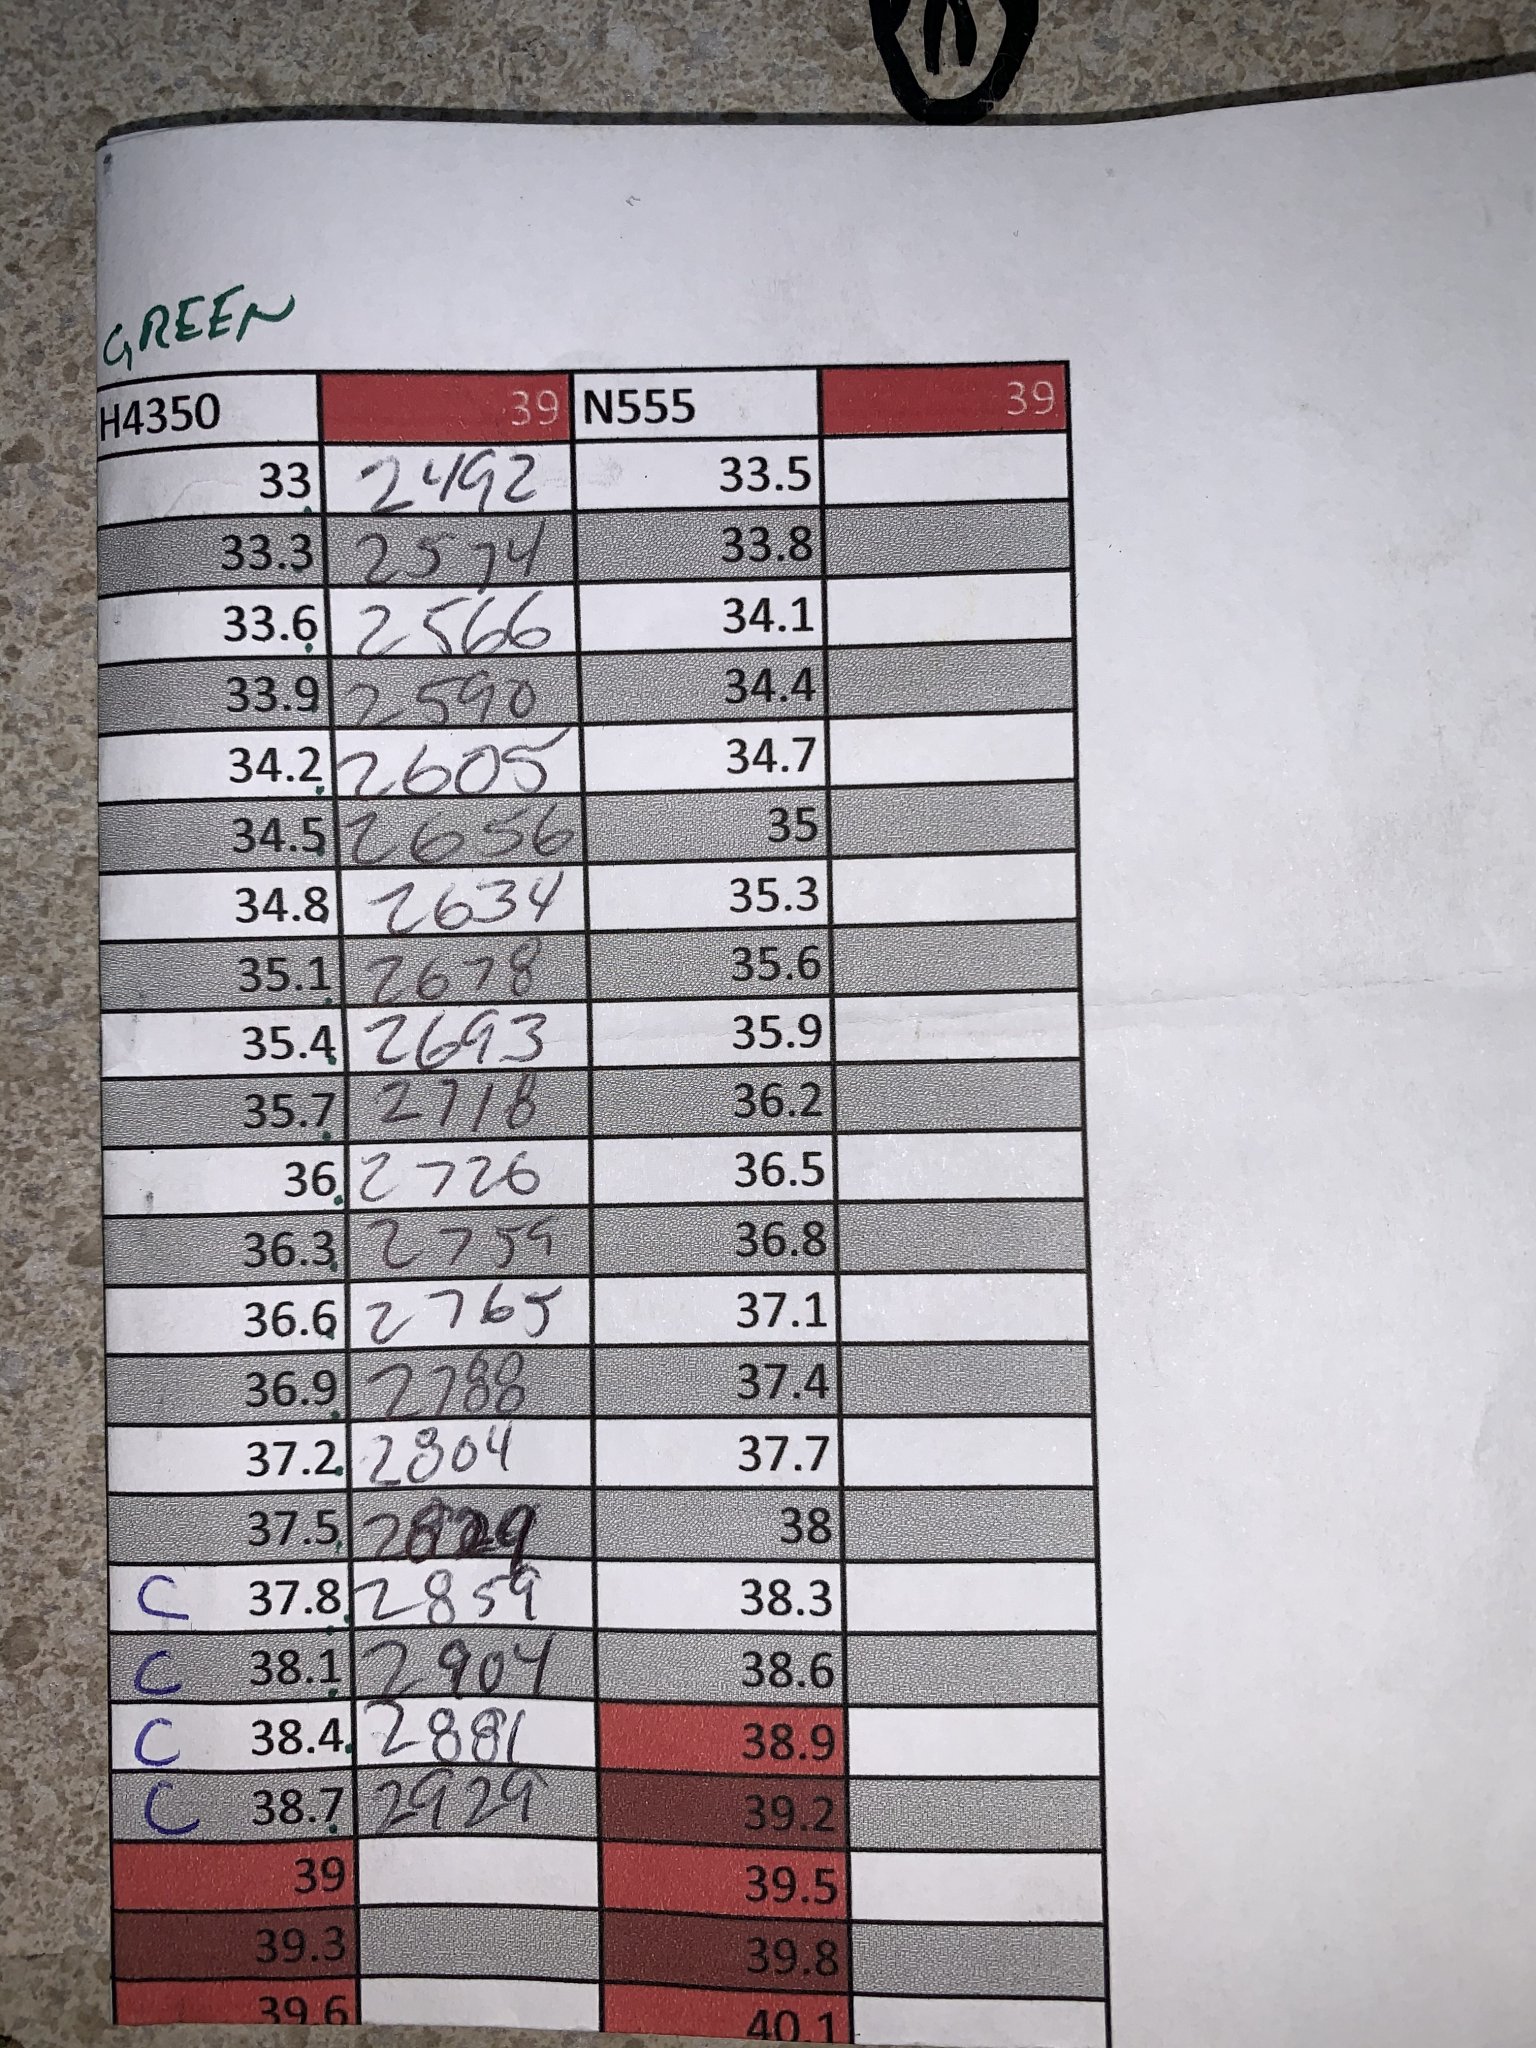 GREEN
H4350 39 N555 39
33 2492 33.5
33.3 2574 33.8
33.6 2566 34.1
33.9 2590 34.4
34.2 2605 34.7
34.5 2656 35
34.8 2634 35.3
35.1 2678 35.6
35.4 2693 35.9
35.7 2718 36.2
36 2726 36.5
36.3 2759 36.8
36.6 2765 37.1
36.9 2788 37.4
37.2 2804 37.7
37.5 2829 38
C 37.8 2859 38.3
C 38.1 2904 38.6
C 38.4 2881 38.9
C 38.7 2929 39.2
39 39.5
39.3 39.8
39.6 40.1